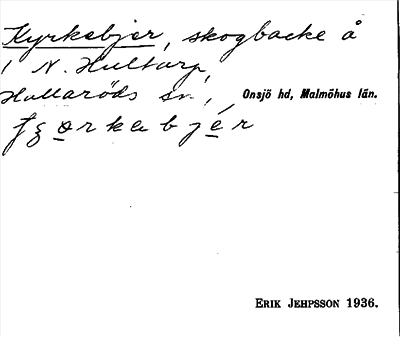 Kyrkebjer, skogbacke å
1 N. Hultarp,
Hallaröds sn., Onsjö hd, Malmöhus län.
ERIK JEHPSSON 1936.